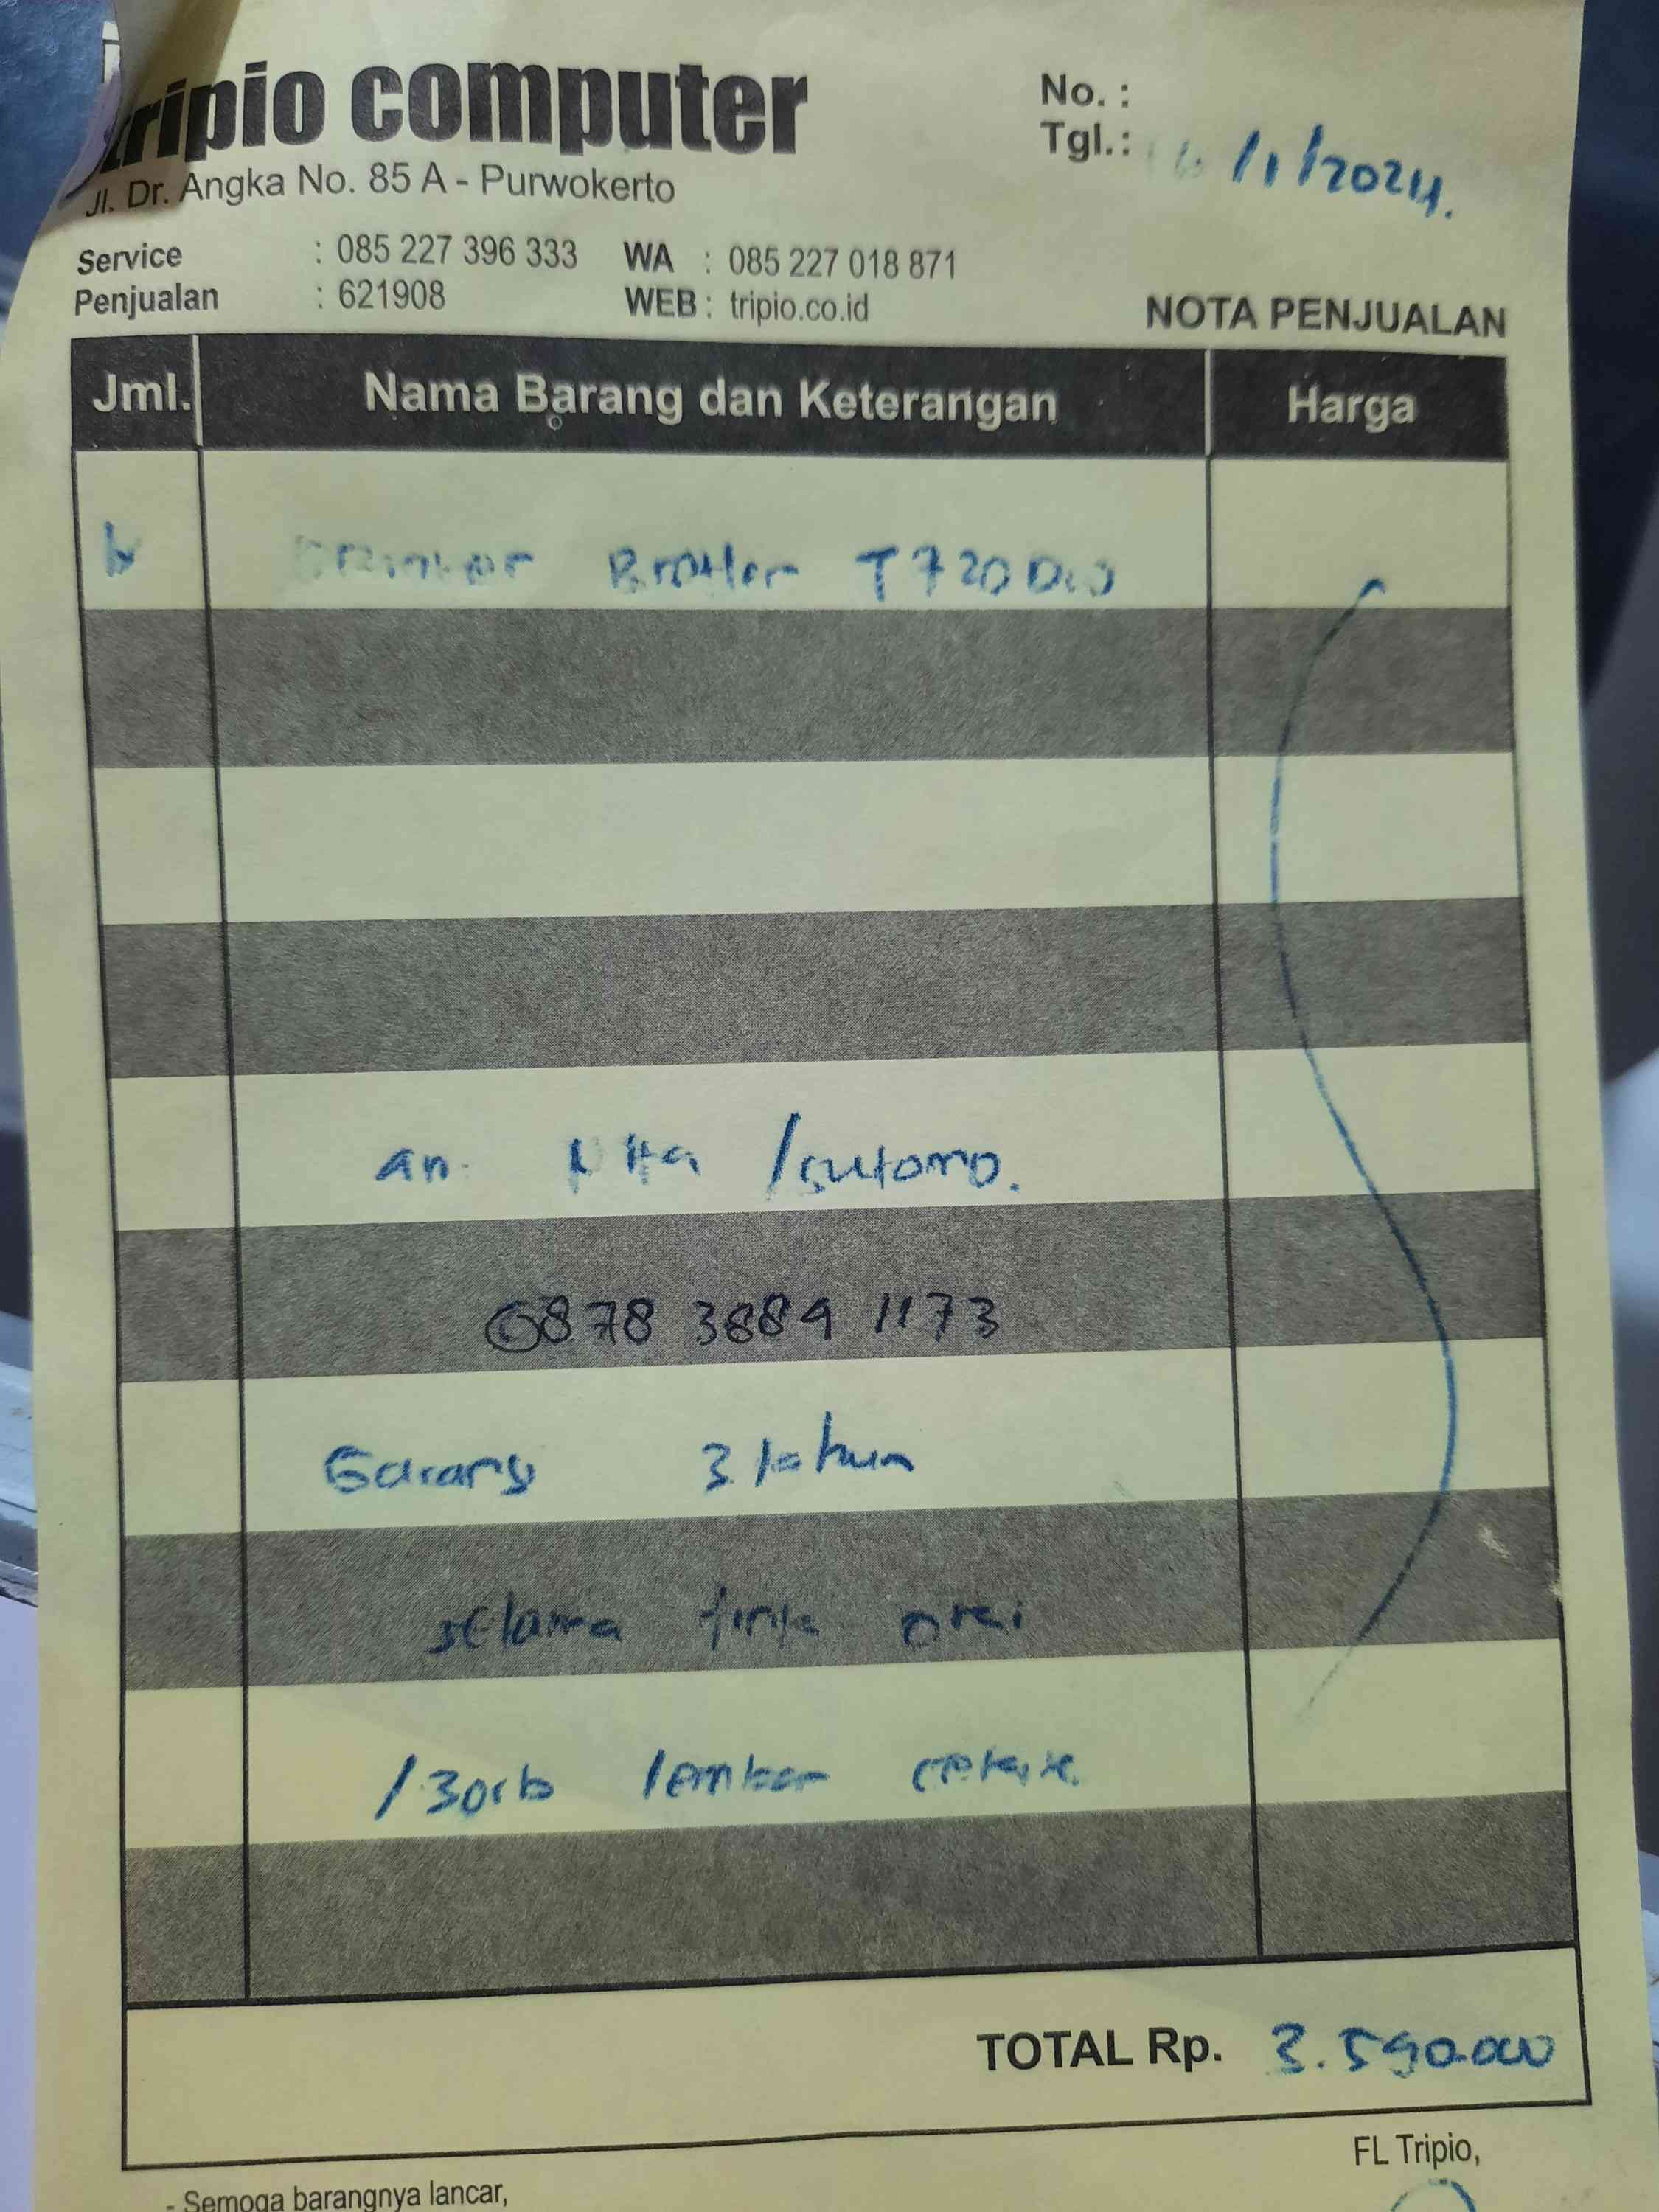 tripio computer
Jl. Dr. Angka No. 85 A - Purwokerto
No. :
Tgl.: /1/2024.
Service : 085 227 396 333 WA : 085 227 018 871
Penjualan : 621908 WEB : tripio.co.id
NOTA PENJUALAN
Jml. Nama Barang dan Keterangan Harga
Printer Brother T720DW
an. Nita /sutomo.
0878 3889 1173
Garansi 3 tahun
selama tinta ori
/30rb lembar cetak.
TOTAL Rp. 3.590.000
FL Tripio,
- Semoga barangnya lancar,